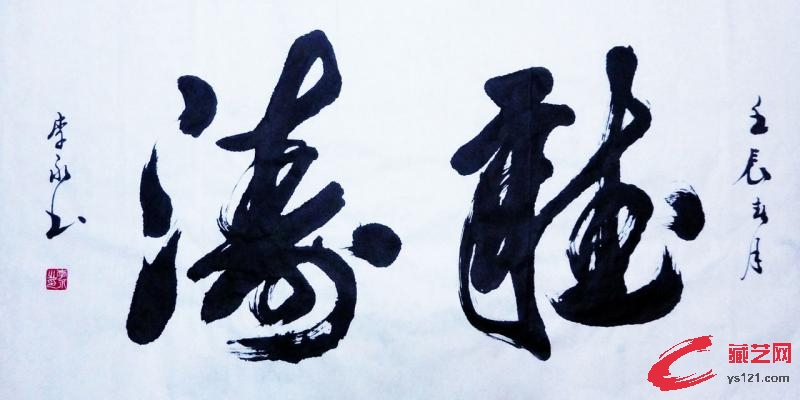 壬辰春月
聽濤
李永书
藏艺网
ys121.com